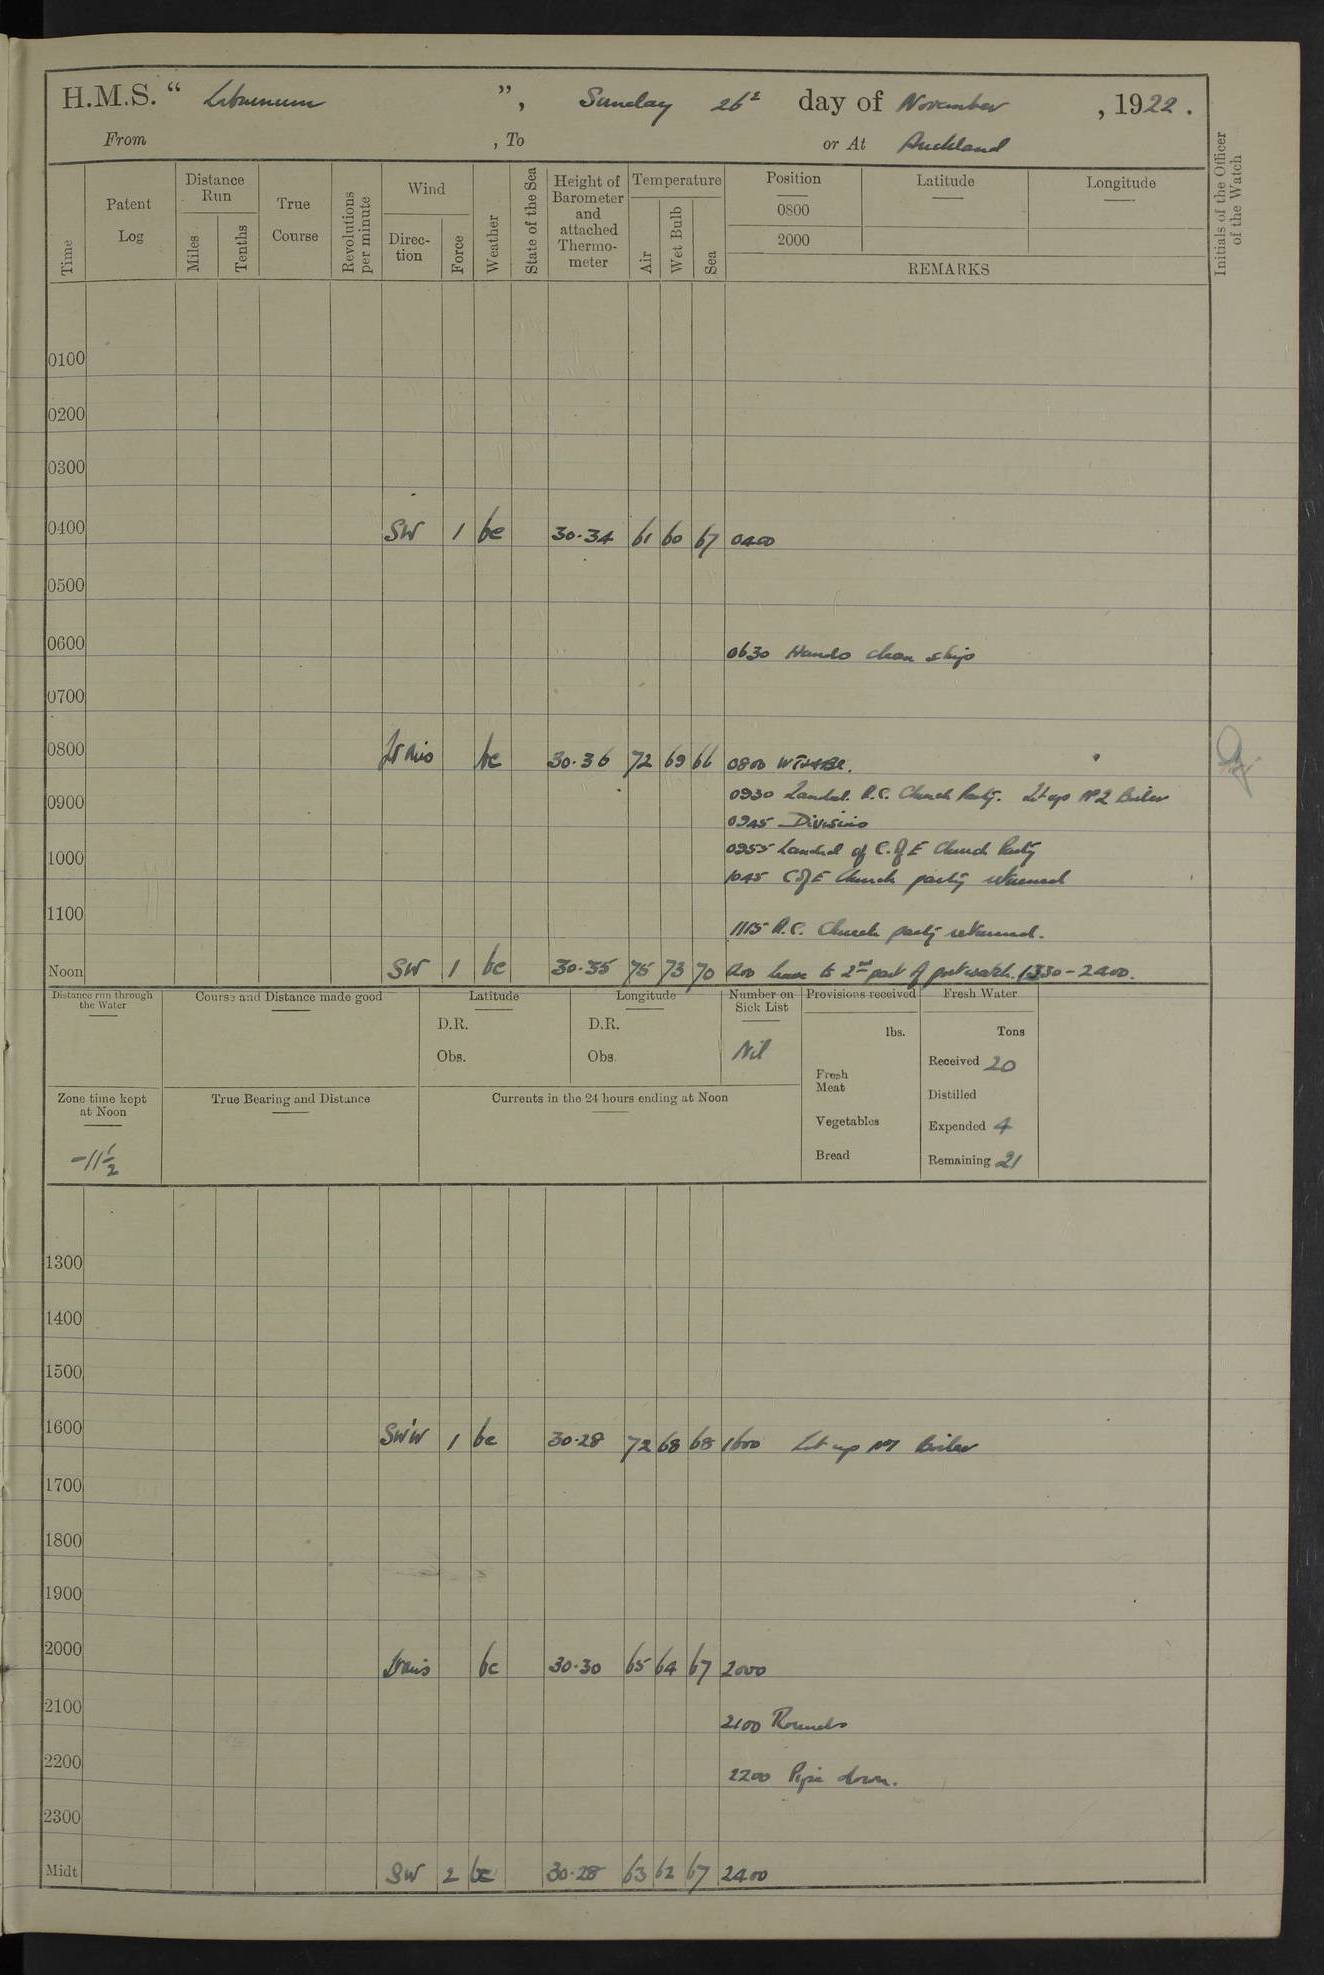 H.M.S. “ Laburnum ”, Sunday 26th day of November, 1922.
From , To or At Auckland
Time
Patent Log
Distance Run
Miles
Tenths
True Course
Revolutions per minute
Wind
Direc-tion
Force
Weather
State of the Sea
Height of Barometer and attached Thermo-meter
Temperature
Air
Wet Bulb
Sea
Position Latitude Longitude
0800
2000
REMARKS
Initials of the Officer of the Watch
0100
0200
0300
0400 SW 1 bc 30·34 61 60 67 0400
0500
0600
0630 Hands clean ship
0700
0800 bc 30·36 72 69 66 0800
0900 0930 Landed R.C. Church Party. Lit up No 2 Boiler
0945 Divisions
0955 Landed C. of E Church Party
1000
1045 C of E Church party returned
1100
1115 R.C. Church party returned.
Noon SW 1 bc 30·35 75 73 70 leave to 2nd part of port watch. 1330-2400.
Distance run through the Water
Course and Distance made good
Latitude
D.R.
Obs.
Longitude
D.R.
Obs.
Number on Sick List
Nil
Provisions received
lbs.
Fresh Meat
Vegetables
Bread
Fresh Water
Tons
Received 20
Distilled
Expended 4
Remaining 21
Zone time kept at Noon
-11½
True Bearing and Distance
Currents in the 24 hours ending at Noon
1300
1400
1500
1600 SW'W 1 bc 30·28 72 68 68 1600 Lit up No 1 Boiler
1700
1800
1900
2000 bc 30·30 65 64 67 2000
2100
2100 Rounds
2200
2200 Pipe down.
2300
Midt SW 2 bc 30·28 63 62 67 2400